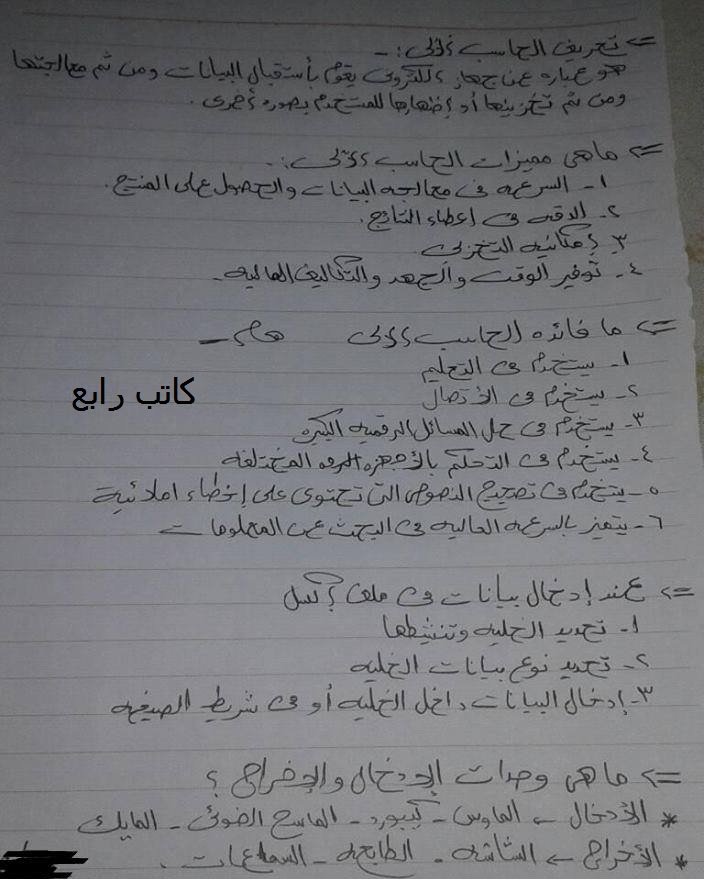 => تعريف الحاسب الآلى :-
هو عباره عن جهاز الكترونى يقوم بأستقبال البيانات ومن ثم معالجتها
ومن ثم تخزينها أو إظهارها للمستخدم بصوره أخرى .
=> ما هى مميزات الحاسب الآلى :-
١- السرعه فى معالجه البيانات والحصول على المنتج .
٢- الدقه فى إعطاء النتائج .
٣- إمكانيه التخزين
٤- توفير الوقت والجهد والتكاليف الماليه .
=> ما فائده الحاسب الآلى هام -
١- يستخدم فى التعليم
كاتب رابع
٢- يستخدم فى الأتصال
٣- يستخدم فى حل المسائل الرقميه الكبيره
٤- يستخدم فى التحكم بالأجهزه المختلفه
٥- يستخدم فى تصحيح النصوص التى تحتوى على إخطاء املائية
٦- يتميز بالسرعه العاليه فى البحث عن المعلومات
=> عند إدخال بيانات فى ملف إكسل
١- تحديد الخليه وتنشيطها
٢- تحديد نوع بيانات الخليه
٣- إدخال البيانات داخل الخليه أو فى شريط الصيغه
=> ما هى وحدات الإدخال والإخراج ؟
* الأدخال ← الماوس - كيبورد - الماسح الضوئى - المايك
* الأخراج ← الشاشه - الطابعه - السماعات .